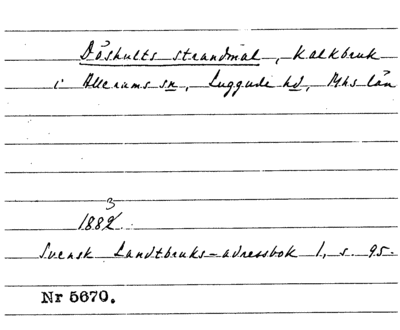 Döshults strandmal, Kalkbruk
i Allerums sn, Luggude hd, Mhs län
3
1882.
Svensk Landtbruks-adressbok 1, s. 95.
Nr 5670.